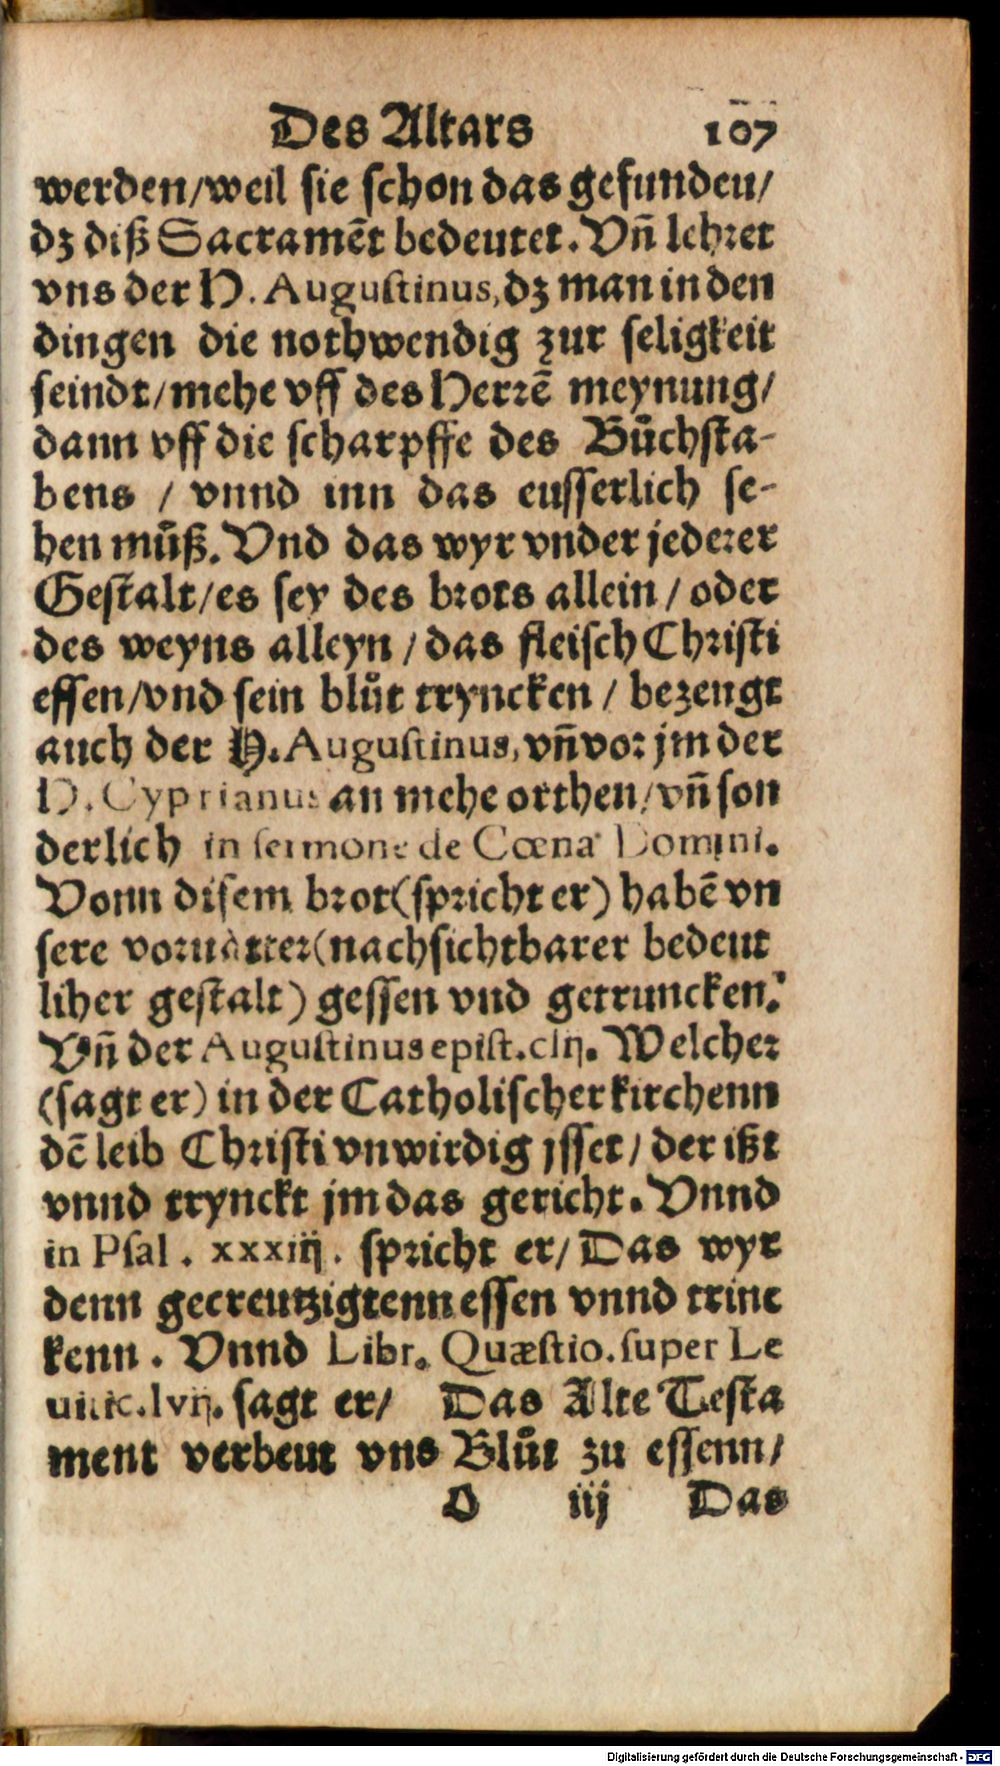 Des Altars 107
werden/weil sie schon das gefunden/
dz diß Sacramēt bedeutet. Vñ lehret
vns der H. Augustinus, dz man in den
dingen die nothwendig zur seligkeit
seindt/mehe vff des Herrē meynung/
dann vff die scharpffe des Bůchsta-
bens / vnnd inn das eusserlich se-
hen můß. Vnd das wyr vnder jederer
Gestalt/es sey des brots allein / oder
des weyns alleyn / das fleisch Christi
essen/vnd sein blůt tryncken / bezengt
auch der H. Augustinus, vñ vor jm der
H. Cyprianus an mehe orthen/vñ son
derlich in sermone de Cœna Domini.
Vonn disem brot(spricht er) habē vn
sere voruätter(nach sichtbarer bedeut
liher gestalt) gessen vnd getruncken.
Vñ der Augustinus epist. clij. Welcher
(sagt er) in der Catholischer kirchenn
dē leib Christi vnwirdig jsset/ der ißt
vnnd trynckt jm das gericht. Vnnd
in Psal. xxxiij. spricht er/ Das wyr
denn gecreutzigtenn essen vnnd trinc
kenn. Vnnd Libr. Quæstio. super Le
uitic. lvij. sagt er/ Das Alte Testa
ment verbeut vns Blůt zu essenn/
O iij Das
Digitalisierung gefördert durch die Deutsche Forschungsgemeinschaft - DFG